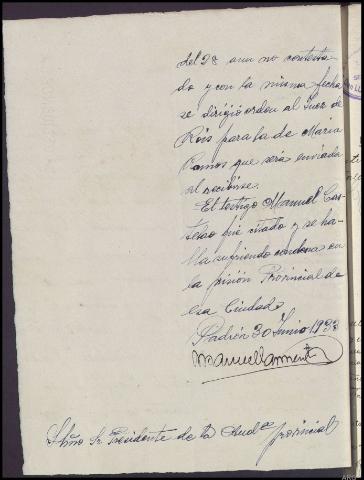 del 28 aun no contesta-
do y con la misma fecha
se dirigió orden al Juez de
Rois para la de Maria
Ramos que será enviada
al recibirse.
El testigo Manuel Cas-
telao fue citado y se ha-
lla sufriendo condena en
la prisión Provincial de
esa Ciudad
Padrón 30 Junio 1933
Manuel
Ilmo Sr Presidente de la Audª provincial